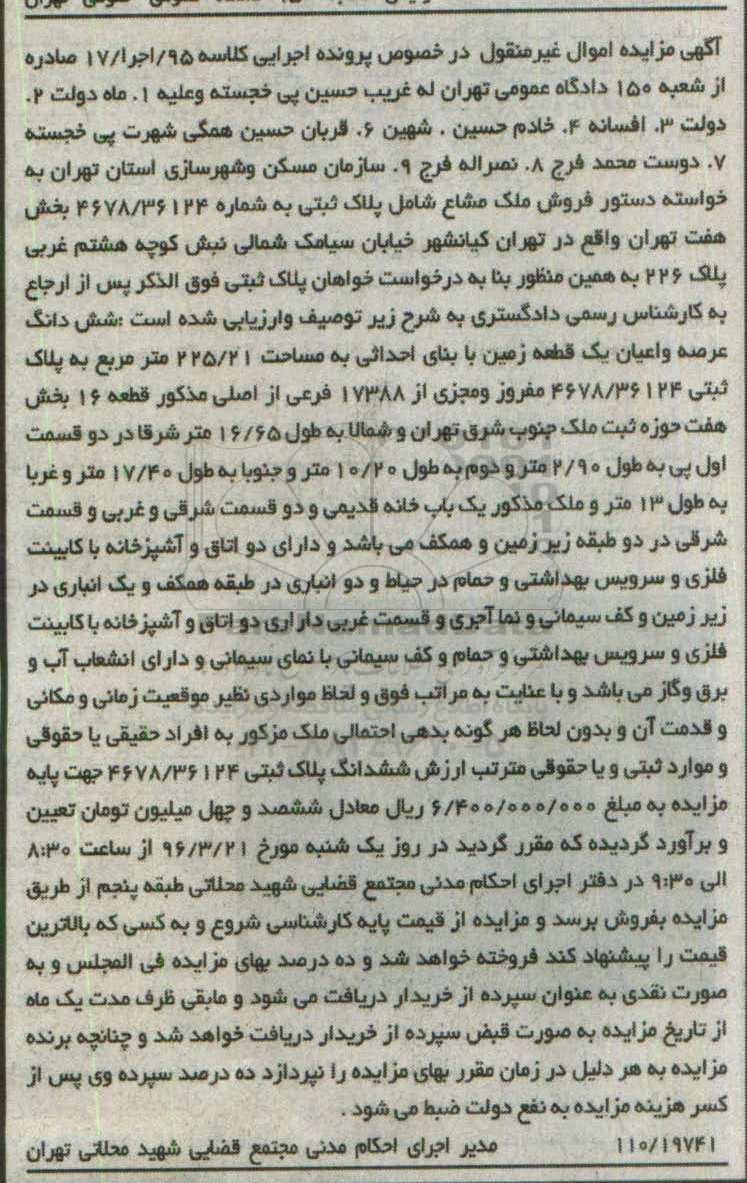 آگهی مزایده اموال غیرمنقول در خصوص پرونده اجرایی کلاسه ۹۵/اجرا/۱۷ صادره
از شعبه ۱۵۰ دادگاه عمومی تهران له غریب حسین پی خجسته وعلیه ۱. ماه دولت ۲.
دولت ۳. افسانه ۴. خادم حسین . شهین ۶. قربان حسین همگی شهرت پی خجسته
۷. دوست محمد فرج ۸. نصراله فرج ۹. سازمان مسکن وشهرسازی استان تهران به
خواسته دستور فروش ملک مشاع شامل پلاک ثبتی به شماره ۴۶۷۸/۳۶۱۲۴ بخش
هفت تهران واقع در تهران کیانشهر خیابان سیامک شمالی نبش کوچه هشتم غربی
پلاک ۲۲۶ به همین منظور بنا به درخواست خواهان پلاک ثبتی فوق الذکر پس از ارجاع
به کارشناس رسمی دادگستری به شرح زیر توصیف وارزیابی شده است :شش دانگ
عرصه واعیان یک قطعه زمین با بنای احداثی به مساحت ۲۲۵/۲۱ متر مربع به پلاک
ثبتی ۴۶۷۸/۳۶۱۲۴ مفروز ومجزی از ۱۷۳۸۸ فرعی از اصلی مذکور قطعه ۱۶ بخش
هفت حوزه ثبت ملک جنوب شرق تهران و شمالا به طول ۱۶/۶۵ متر شرقا در دو قسمت
اول پی به طول ۲/۹۰ متر و دوم به طول ۱۰/۲۰ متر و جنوبا به طول ۱۷/۴۰ متر و غربا
به طول ۱۳ متر و ملک مذکور یک باب خانه قدیمی و دو قسمت شرقی و غربی و قسمت
شرقی در دو طبقه زیر زمین و همکف می باشد و دارای دو اتاق و آشپزخانه با کابینت
فلزی و سرویس بهداشتی و حمام در حیاط و دو انباری در طبقه همکف و یک انباری در
زیر زمین و کف سیمانی و نما آجری و قسمت غربی دار اری دو اتاق و آشپزخانه با کابینت
فلزی و سرویس بهداشتی و حمام و کف سیمانی با نمای سیمانی و دارای انشعاب آب و
برق وگاز می باشد و با عنایت به مراتب فوق و لحاظ مواردی نظیر موقعیت زمانی و مکانی
و قدمت آن و بدون لحاظ هر گونه بدهی احتمالی ملک مزکور به افراد حقیقی یا حقوقی
و موارد ثبتی و یا حقوقی مترتب ارزش ششدانگ پلاک ثبتی ۴۶۷۸/۳۶۱۲۴ جهت پایه
مزایده به مبلغ ۶/۴۰۰/۰۰۰/۰۰۰ ریال معادل ششصد و چهل میلیون تومان تعیین
و برآورد گردیده که مقرر گردید در روز یک شنبه مورخ ۹۶/۳/۲۱ از ساعت ۸:۳۰
الی ۹:۳۰ در دفتر اجرای احکام مدنی مجتمع قضایی شهید محلاتی طبقه پنجم از طریق
مزایده بفروش برسد و مزایده از قیمت پایه کارشناسی شروع و به کسی که بالاترین
قیمت را پیشنهاد کند فروخته خواهد شد و ده درصد بهای مزایده فی المجلس و به
صورت نقدی به عنوان سپرده از خریدار دریافت می شود و مابقی ظرف مدت یک ماه
از تاریخ مزایده به صورت قبض سپرده از خریدار دریافت خواهد شد و چنانچه برنده
مزایده به هر دلیل در زمان مقرر بهای مزایده را نپردازد ده درصد سپرده وی پس از
کسر هزینه مزایده به نفع دولت ضبط می شود .
۱۱۰/۱۹۷۴۱ مدیر اجرای احکام مدنی مجتمع قضایی شهید محلاتی تهران